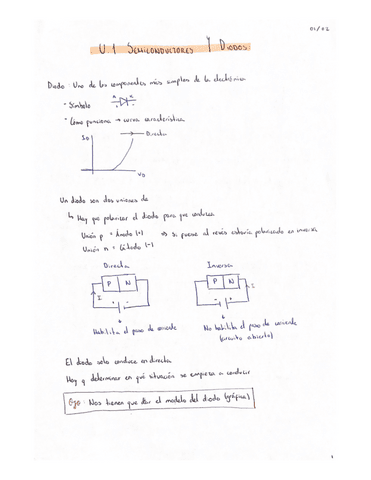 01/02
U1 SEMICONDUCTORES Y DIODOS
Diodo: Uno de los componentes más simples de la electrónica
- Símbolo
- Cómo funciona → curva característica
ID
Directa
VD
Un diodo son dos uniones de
↳ Hay que polarizar el diodo para que conduzca
Unión p = ánodo (+) ⇒ si fuese al revés estaría polarizado en inversa
Unión n = Cátodo (-)
Directa
Inversa
P N
P N
I
I
+ -
- +
Habilita el paso de corriente
No habilita el paso de corriente
(circuito abierto)
El diodo solo conduce en directa
Hay q determinar en qué situación se empieza a conducir
Ojo: Nos tienen que dar el modelo del diodo (gráfica)